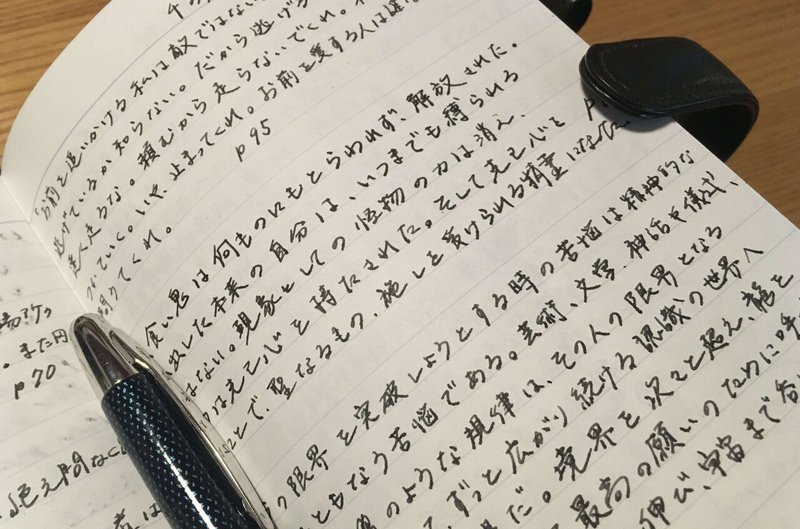 千の
「お前を追いかける私は敵ではない
逃げているか知らない。だから逃げる
速く走るな。頼むから走らないでくれ。
ついていく。いや、止まってくれ。お前を愛する人は
ってくれ。
p95
食い意は何ものにもとらわれず、解放された。
した本来の自分は、いつまでも縛られる
はない。現象としての怪物の力は消え、
は克己心を満たされた。そして克己心を
ことで、聖なるもの、施しを受けられる精霊になった。
の限界を突破しようとする時の苦悩は精神的な
ともなう苦悩である。芸術、文学、神話や儀式、
のような規律は、その人の限界となる
ずっと広がり続ける認識の世界へ
だ。境界を次々と超え、龍を
最高の願いのために呼
伸び、宇宙まで呑
。また円
p70
絶え間なく
は